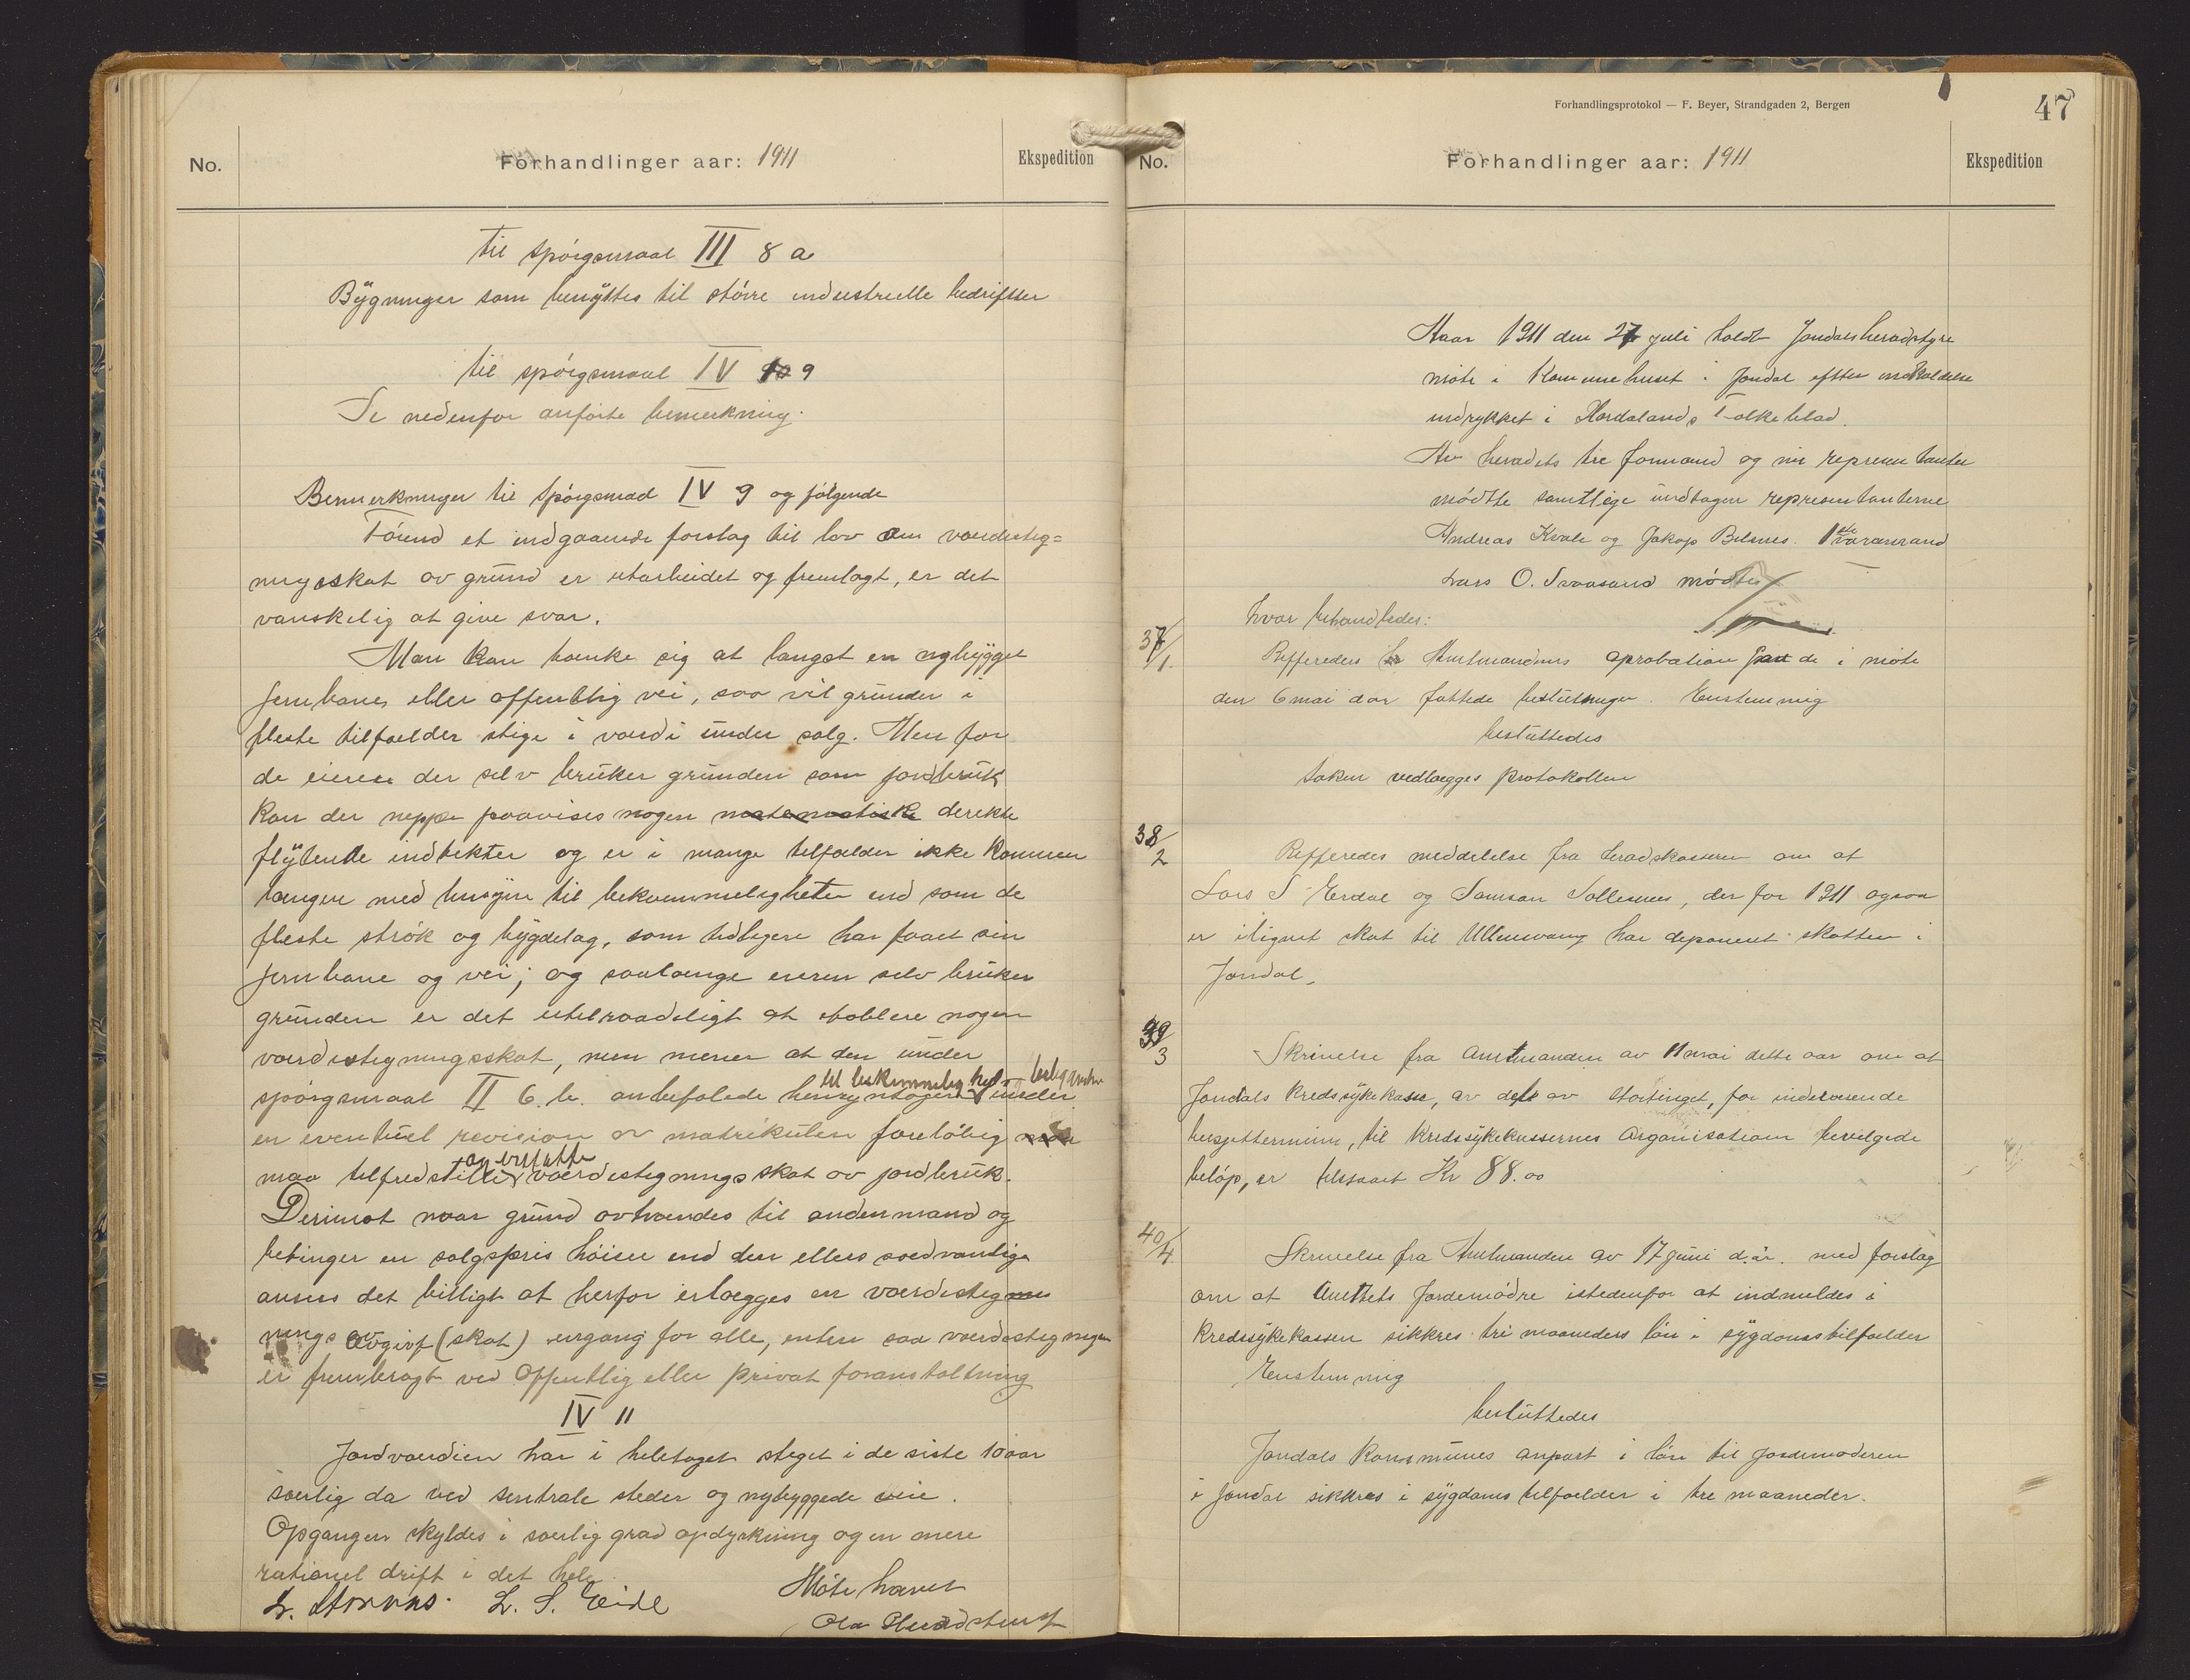 No.
Forhandlinger aar: 1911
Ekspedition
til spórgsmaal III 8 a
Bygninger som benyttes til större industrielle bedrifter
til spórgsmaal IV 9
Se nedenfor anförte bemerkning.
Bemerkninger til spórgsmaal IV 9 og fölgende
Förend et indgaaende forslag til lov om værdistig=
ningsskat av grund er utarbeidet og fremlagt, er det
vanskelig at give svar.
Man kan tænke sig at langst en nybygget
jernbane eller offentlig vei, saa vil grunden i
fleste tilfælder stige i værdi under salg. Men for
de eierne der selv bruker grunden som jordbruk
kan der neppe paavises nogen matematiske derekte
flytende indtekter og er i mange tilfælder ikke kommen
længer med hensyn til bekvemmeligheter end som de
fleste strök og bygdelag, som tidligere har faaet sin
jernbane og vei; og saalænge eieren selv bruker
grunden er det utilraadeligt at etablere nogen
værdistigningsskat, men mener at den under
spórgsmaal II 6. b. anbefalede hensyntagen til bekvemmelig hed - beliggenhet under
en eventuel revision av matrikulen forelöbig
maa tilfredstille og erstatte værdistigningsskat av jordbruk.
Derimot naar grund avhændes til andenmand og
betinger en salgspris höiere end den ellers sædvanlige
ansees det billigt at herfor erlægges en værdistig
nings avgivt (skat) engang for alle, enten saa værdistigningen
er frembragt ved Offentlig eller privat foranstaltning
IV 11
Jordværdien har i heletaget steget i de siste 10 aar
særlig da ved sentrale steder og nybyggede veie.
Opgangen skyldes i særlig grad opdyrkning og en mere
rationel drift i det hele.
Möte hævet
L. S. Eide
Forhandlingsprotokol — F. Beyer, Strandgaden 2, Bergen
47
No.
Forhandlinger aar: 1911
Ekspedition
Aaar 1911 den 27 juli holdt Jondalsheradstyre
möte i Kommunehuset i Jondal efter indkaldelse
indrykket i Hordalands Folkeblad.
Av heradets tre formænd og ni representanter
mödtte samtlige undtagen representanterne
Andreas Kvale og Jakop Belsnes. 1ste varamand
Lars O. Svaasand mödte
hvor behandledes:
37/1.
Reffereders Amtmandens aprobation paa de i möte
den 6 mai d aar fattede beslutninger. Enstemmig
besluttedes
saken vedlægges protokollen
38/2
Refferedes meddelelse fra heradskassereren om at
Lars S Erdal og Samson Sollesnes, der for 1911 ogsaa
er ilignet skat til Ullensvang har deponeret skatten i
Jondal.
39/3
Skrivelse fra Amtmanden av 11 mai dette aar om at
Jondals Kredssykekasse, av dete av Stortinget, for indeværende
budsjettermin, til Kredssykekassernes Organisation bevilgede
belöp, er tilstaaet Kr 88.00
40/4
Skrivelse fra Amtmanden av 17 juni d.år. med forslag
om at Amttets Jordemödre istedenfor at indmeldes i
Kredssykekassen sikkres tre maaneders lön i sygdomstilfælder
Enstemmig
besluttedes
Jondals Kommunes anpart i lön til Jordemoderen
i Jondal sikkres i sygdoms tilfælder i tre maaneder.